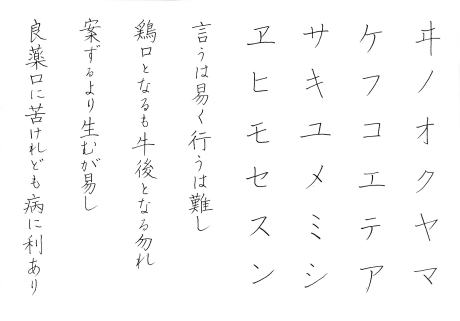 ヰノオクヤマ
ケフコエテア
サキユメミシ
ヱヒモセスン
言うは易く行うは難し
鶏口となるも牛後となる勿れ
案ずるより生むが易し
良薬口に苦けれども病に利あり